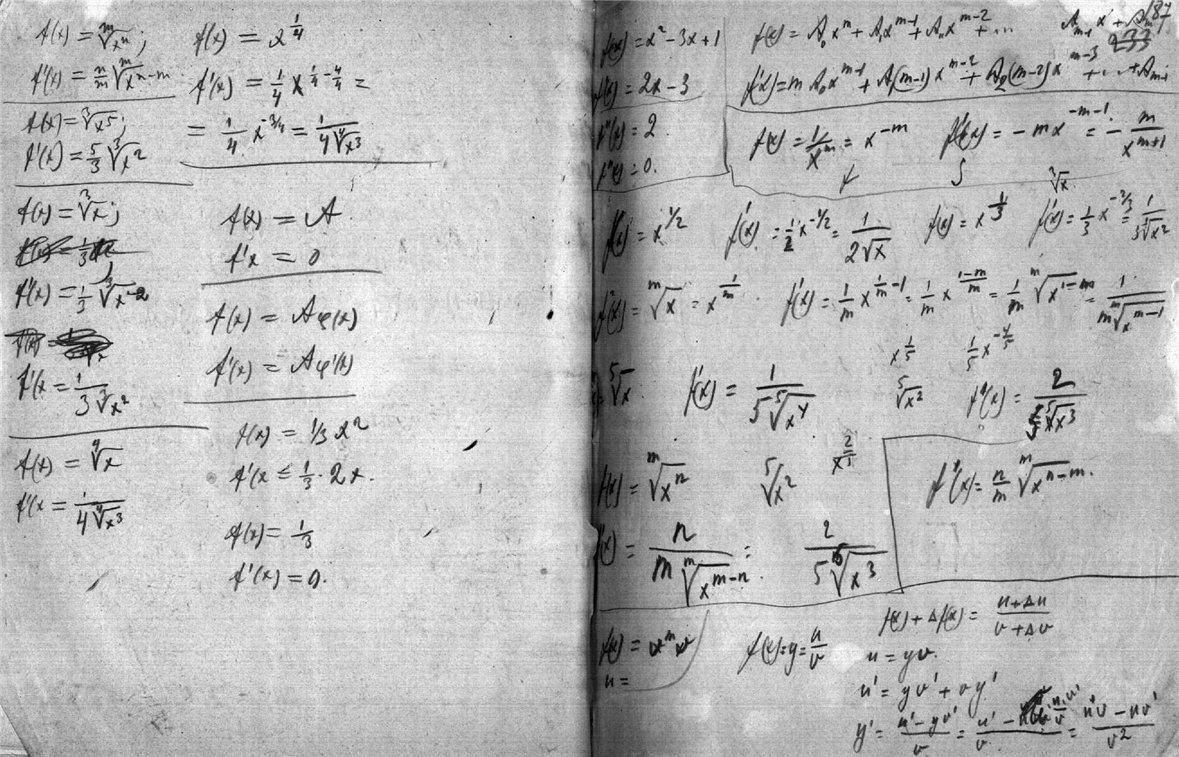 f(x) = ᵐ√xⁿ;
f'(x) = n/m ᵐ√xⁿ⁻ᵐ
f(x) = ³√x⁵;
f'(x) = 5/3 ³√x²
f(x) = ³√x;
f'(x) = 1/3 ³√x⁻²
f'(x = 1/(3 ³√x²)
f(x) = ⁴√x
f'(x = 1/(4 ⁴√x³)
f(x) = x^(1/4)
f'(x) = 1/4 x^(1/4 - 4/4) =
= 1/4 x^(-3/4) = 1/(4 ⁴√x³)
f(x) = A
f'x = 0
f(x) = Aφ(x)
f'(x) = Aφ'(x)
f(x) = 1/3 x²
f'(x = 1/3 · 2x.
f(x) = 1/3
f'(x) = 0.
187
233
f(x) = x² - 3x + 1
f'(x) = 2x - 3
f''(x) = 2
f'''(x) = 0.
f(x) = A₀xᵐ + A₁xᵐ⁻¹ + A₂xᵐ⁻² + ... Aₘ₋₁x + Aₘ
f'(x) = mA₀xᵐ⁻¹ + A₁(m-1)xᵐ⁻² + A₂(m-2)xᵐ⁻³ + ... + Aₘ₋₁
f(x) = 1/xᵐ = x⁻ᵐ f'(x) = -mx⁻ᵐ⁻¹ = - m/xᵐ⁺¹
³√x
f(x) = x^(1/2) f'(x) = 1/2 x^(-1/2) = 1/(2√x) f(x) = x^(1/3) f'(x) = 1/3 x^(-2/3) = 1/(3 ³√x²)
f(x) = ᵐ√x = x^(1/m) f'(x) = 1/m x^(1/m - 1) = 1/m x^((1-m)/m) = 1/m ᵐ√x¹⁻ᵐ = 1/(m ᵐ√xᵐ⁻¹)
x^(1/5) 1/5 x^(-4/5)
= ⁵√x f'(x) = 1/(5 ⁵√x⁴) ⁵√x² f'(x) = 2/(5 ⁵√x³)
f(x) = ᵐ√xⁿ ⁵√x² x^(2/5) f'(x) = n/m ᵐ√xⁿ⁻ᵐ.
f'(x) = n/(m ᵐ√xᵐ⁻ⁿ) = 2/(5 ⁵√x³)
f(x) = f(x) = y = u/v f(x) + Δf(x) = (u + Δu)/(v + Δv)
u = u = yv.
u' = yv' + vy'
y' = (u' - yv')/v = = (u'v - uv')/v²